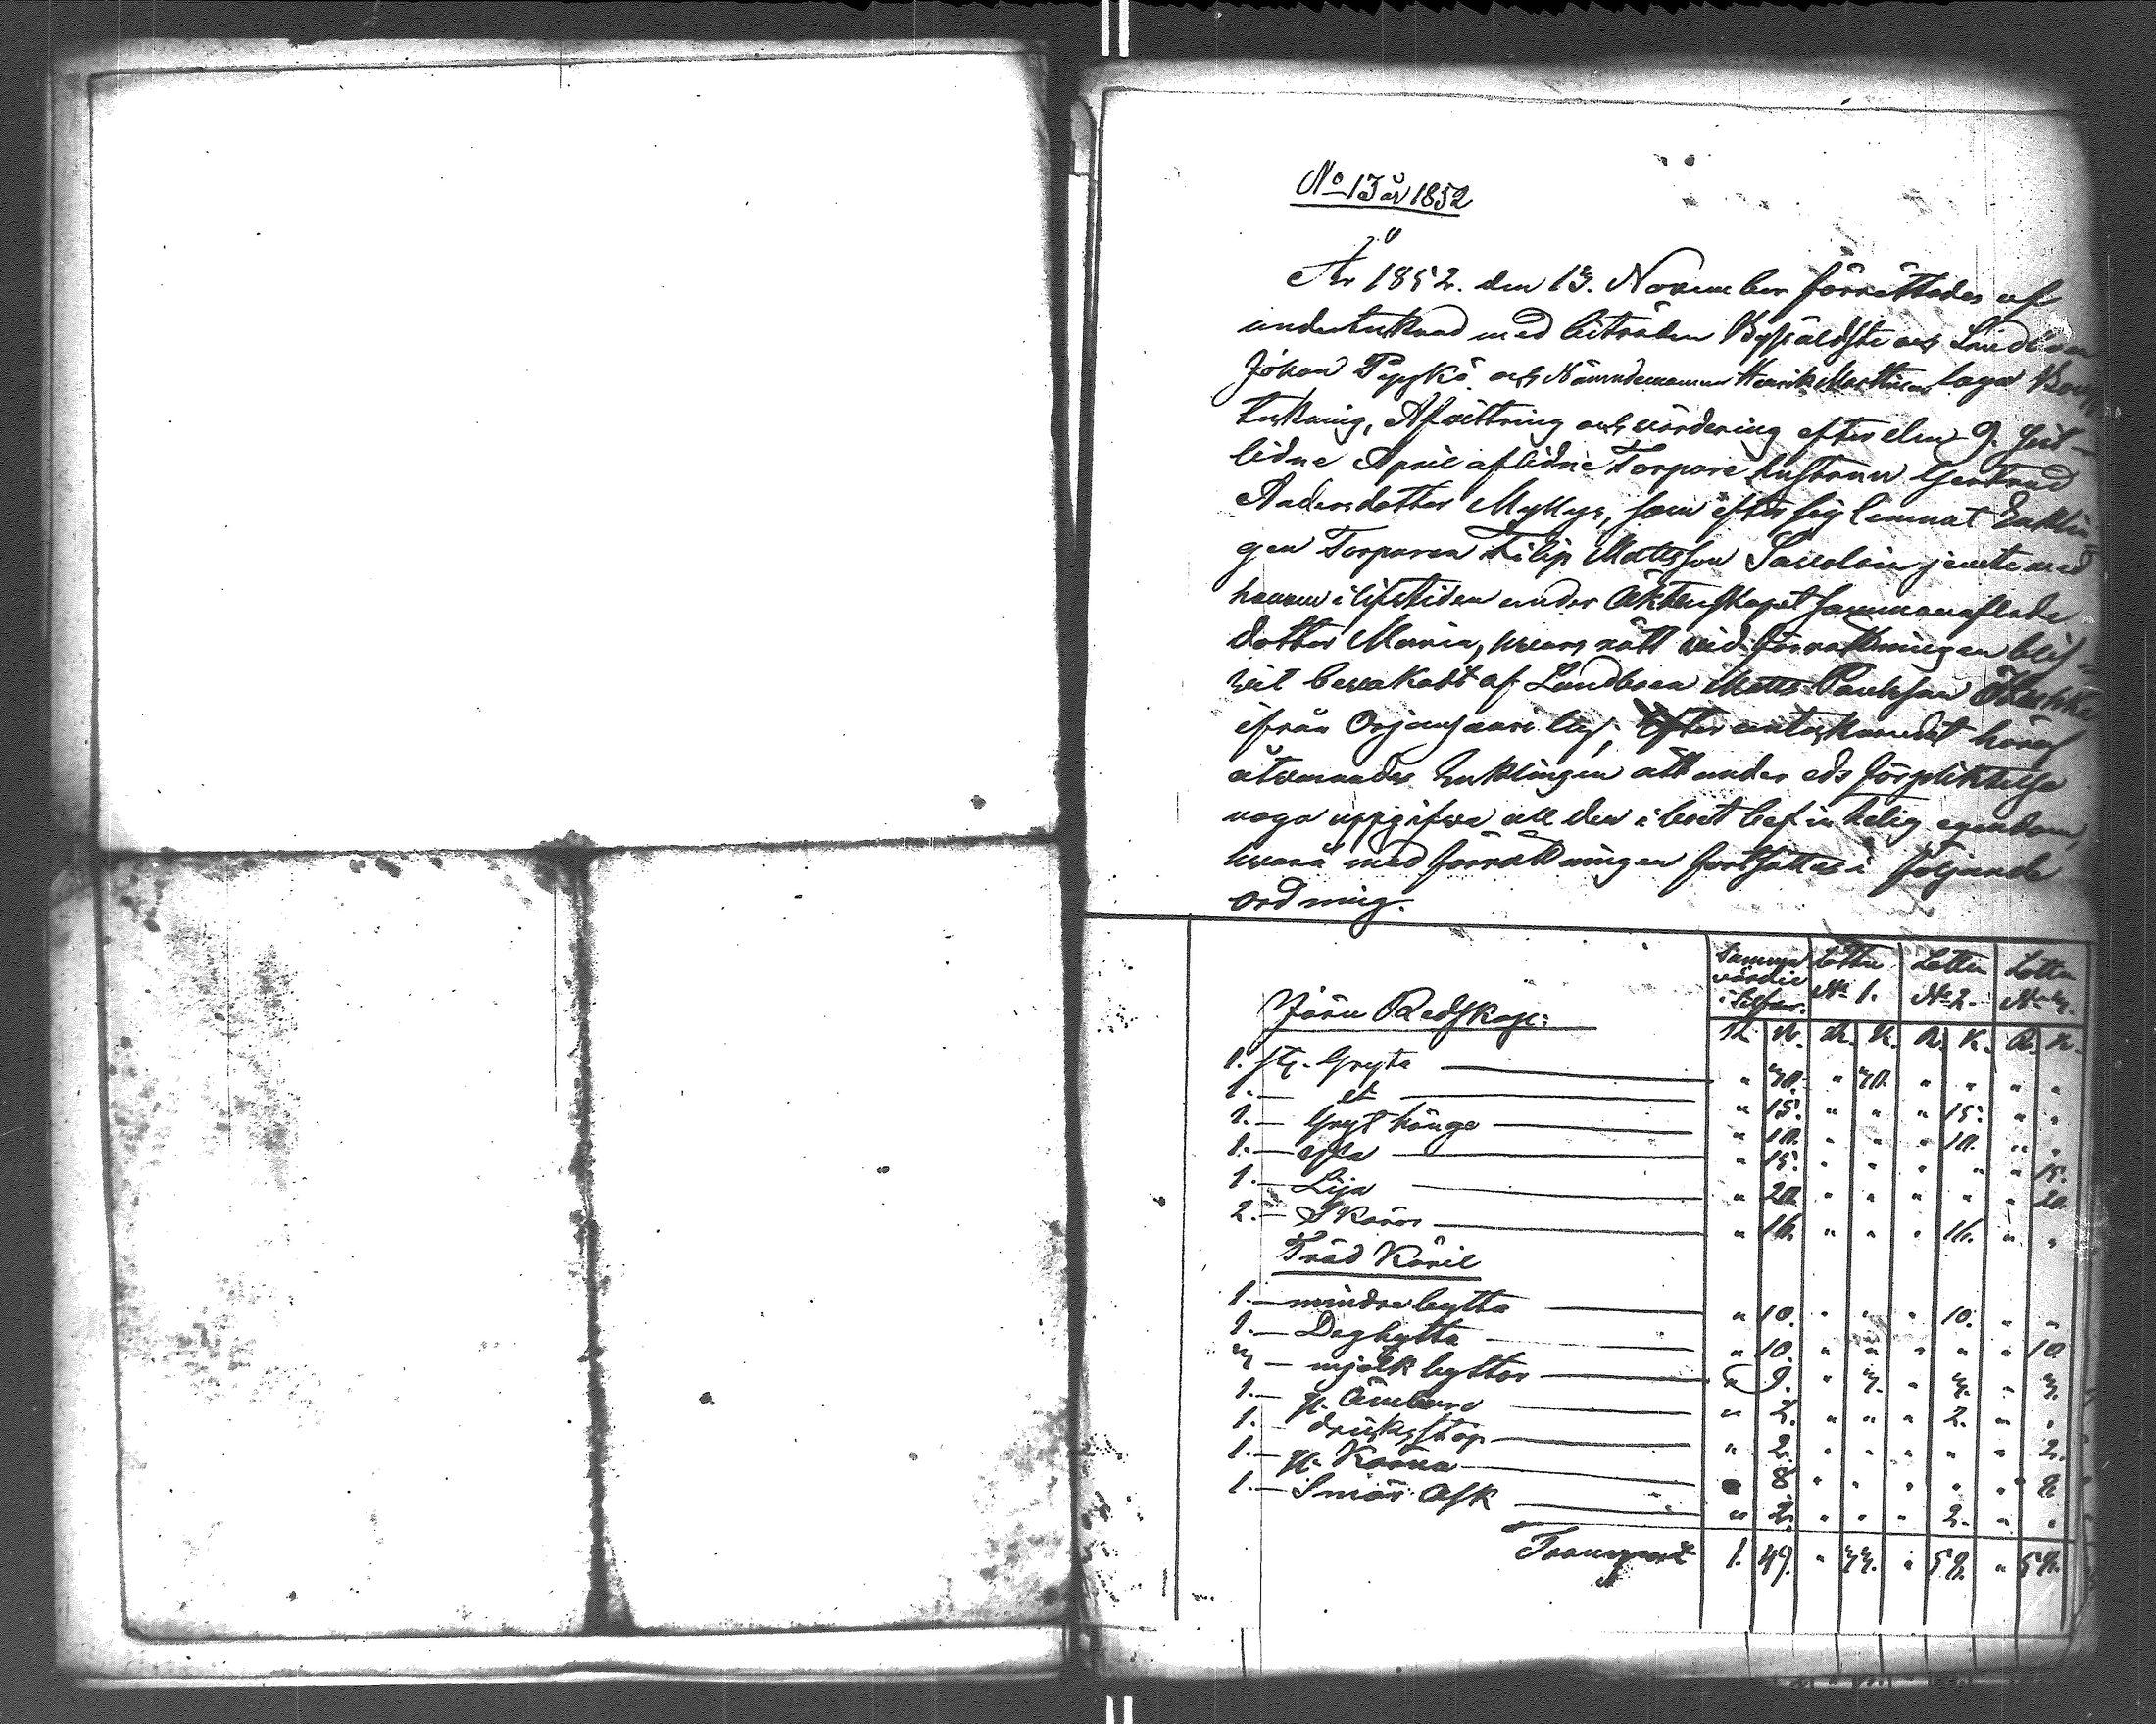 No 13 år 1852
År 1852. den 13. November förrättades af
undertecknad med biträden Byssäldste och Landboen
Johan Pyykö och Nämndemannen Henrik Martikain laga Bouptekning,
Afvittring och värdering efter den 9. sist-
lidne April aflidne Torpare hustrun Gertrud
Andersdotter Mykyr, som efter sig lemnat Enklin-
gen Torparen Filip Mattsson Savolain jemte med
henne i lifstiden under Äktenskapet sammanaflade
dotter Maria, hvars rätt vid förrättningen blif-
vit bevakadt af Landboen Matts Paulsson
ifrån Orjansaari by; Efter
åtvarnades Enklingen att under eds förpliktelse
noga uppgifva all den i boet befintelig egendom,
hvarå med förrättningen fortsattes i följande
ordning.
Samma värdie i Silfver. Lotten No 1. Lotten No 2. Lotten No 3.
Järn Redskap:
R. K. R. K. R. K. R. K.
1. st. Gryta " 30. " 30. " " " "
1. — dt " 15. " " " 15. " "
1. — Gryt hänge " 10. " " " 10. " "
1. — Yxa " 15. " " " " " 15.
1. — Lija " 20. " " " " " 20.
2. — Skäror " 16. " " " 16. " "
Träd Käril
1. — mindre bytta " 10. " " " 10. " "
1. — Degbytta " 10. " " " " " 10
3 — mjölk byttor " 9. " 3. " 3. " 3.
1. — g. Ämbare " 2. " " " 2. " "
1. — dricksstop " 2. " " " " " 2.
1. — g. Kärna " 8. " " " " " 8
1. — Smör Ask " 2. " " " 2. " "
Transport 1. 49. " 33. " 58. " 58.